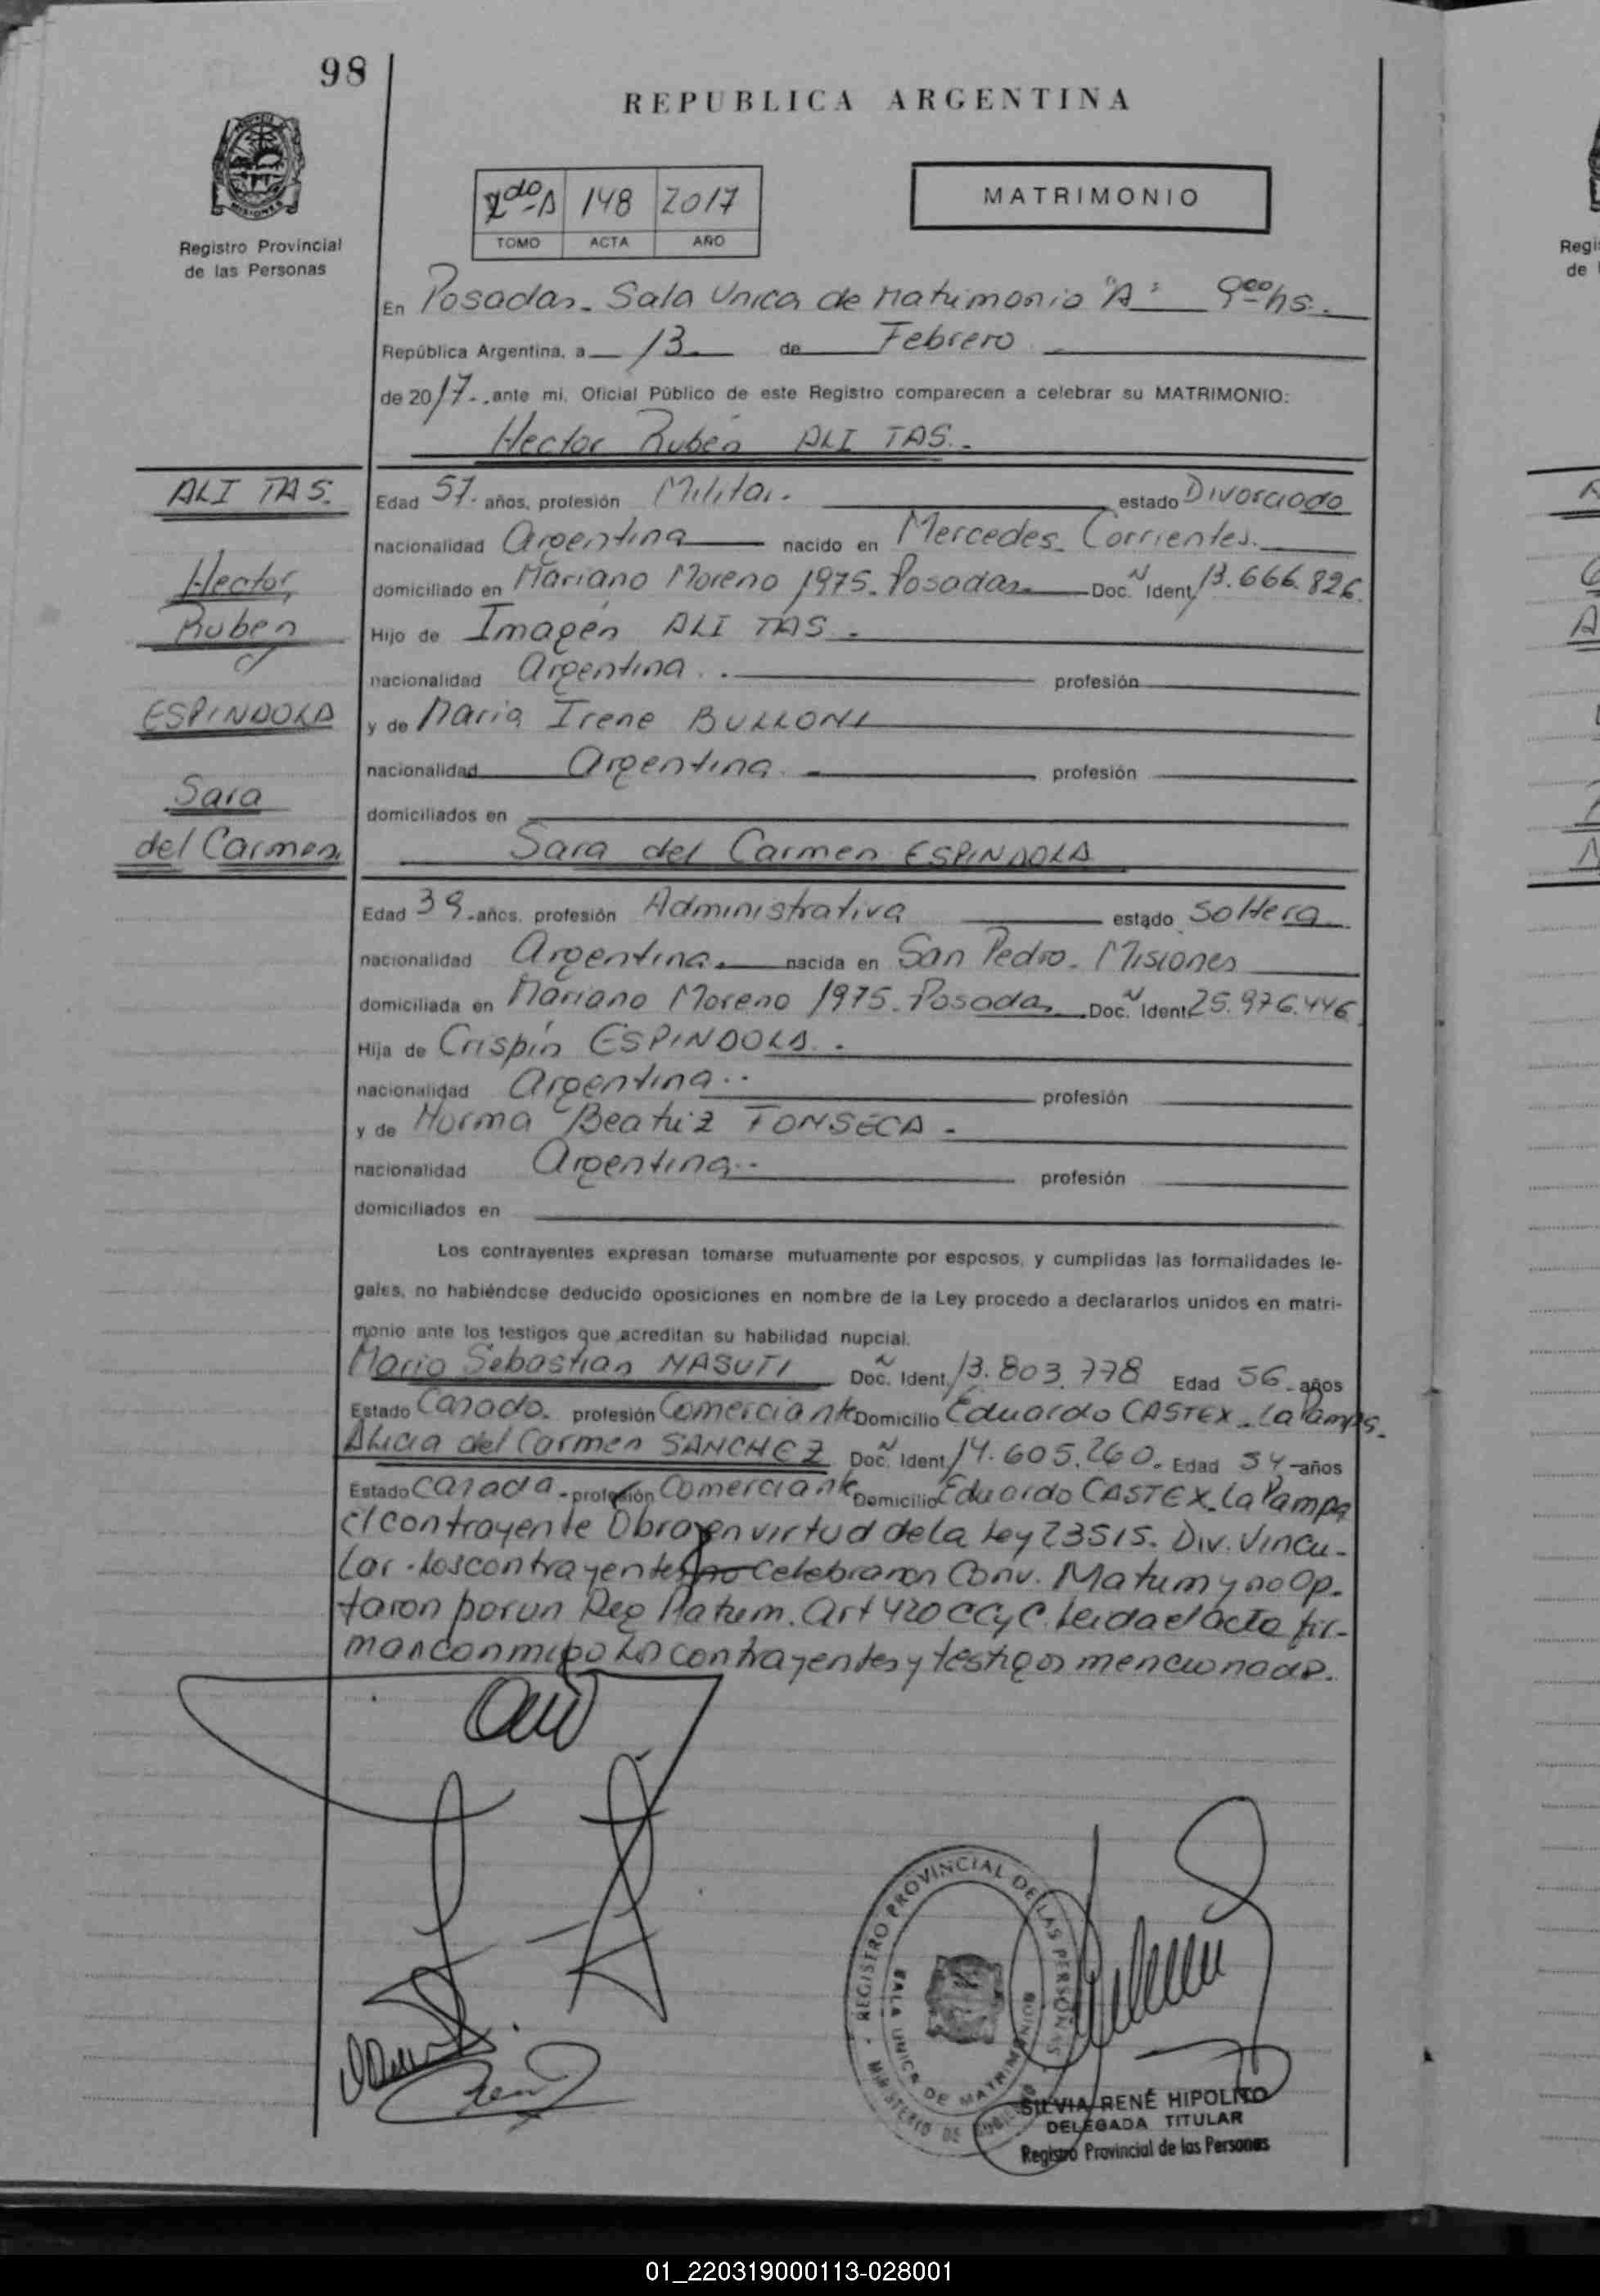 98
REPUBLICA ARGENTINA
Registro Provincial
de las Personas
2do A 148 2017
TOMO ACTA AÑO
MATRIMONIO
En Posadas.- Sala Unica de Matrimonio "A" 9:00 hs.-
República Argentina, a 13 de Febrero
de 2017.- ante mi, Oficial Público de este Registro comparecen a celebrar su MATRIMONIO:
Hector Rubén ALI TAS.-
ALI TAS.
Hector
Ruben
c/
ESPINDOLA
Sara
del Carmen
Edad 57.- años, profesión Militar. estado Divorciado
nacionalidad Argentina nacido en Mercedes. Corrientes.
domiciliado en Mariano Moreno 1975. Posadas Doc. N Ident. 13.666.826.
Hijo de Imagén ALI TAS.
nacionalidad Argentina.. profesión
y de Maria Irene BULLONI
nacionalidad Argentina. profesión
domiciliados en
Sara del Carmen ESPINDOLA
Edad 39.- años, profesión Administrativa estado Soltera
nacionalidad Argentina. nacida en San Pedro. Misiones
domiciliada en Mariano Moreno 1975. Posadas Doc. N Ident. 25.976.446
Hija de Crispín ESPINDOLA.
nacionalidad Argentina.. profesión
y de Norma Beatriz FONSECA.
nacionalidad Argentina.. profesión
domiciliados en
Los contrayentes expresan tomarse mutuamente por esposos, y cumplidas las formalidades le-
gales, no habiéndose deducido oposiciones en nombre de la Ley procedo a declararlos unidos en matri-
monio ante los testigos que acreditan su habilidad nupcial.
Mario Sebastian MASUTI Doc. N Ident. 13.803.778 Edad 56.- años
Estado Casado. profesión Comerciante Domicilio Eduardo CASTEX. La Pampa.
Alicia del Carmen SANCHEZ Doc. N Ident. 14.605.260. Edad 54 años
Estado Casada.- profesión Comerciante Domicilio Eduardo CASTEX. La Pampa
El contrayente Obra en virtud de la Ley 23515. Div. Vincu-
lar. Los contrayentes no Celebraron Conv. Matrim y no Op-
taron por un Reg Matrim. Art 420 CCyC. Leida el acta fir-
man conmigo los contrayentes y testigos mencionados.
REGISTRO PROVINCIAL DE LAS PERSONAS
SALA UNICA DE MATRIMONIO
MINISTERIO DE
SILVIA RENÉ HIPOLITO
DELEGADA TITULAR
Registro Provincial de las Personas
Regi
de
01_220319000113-028001